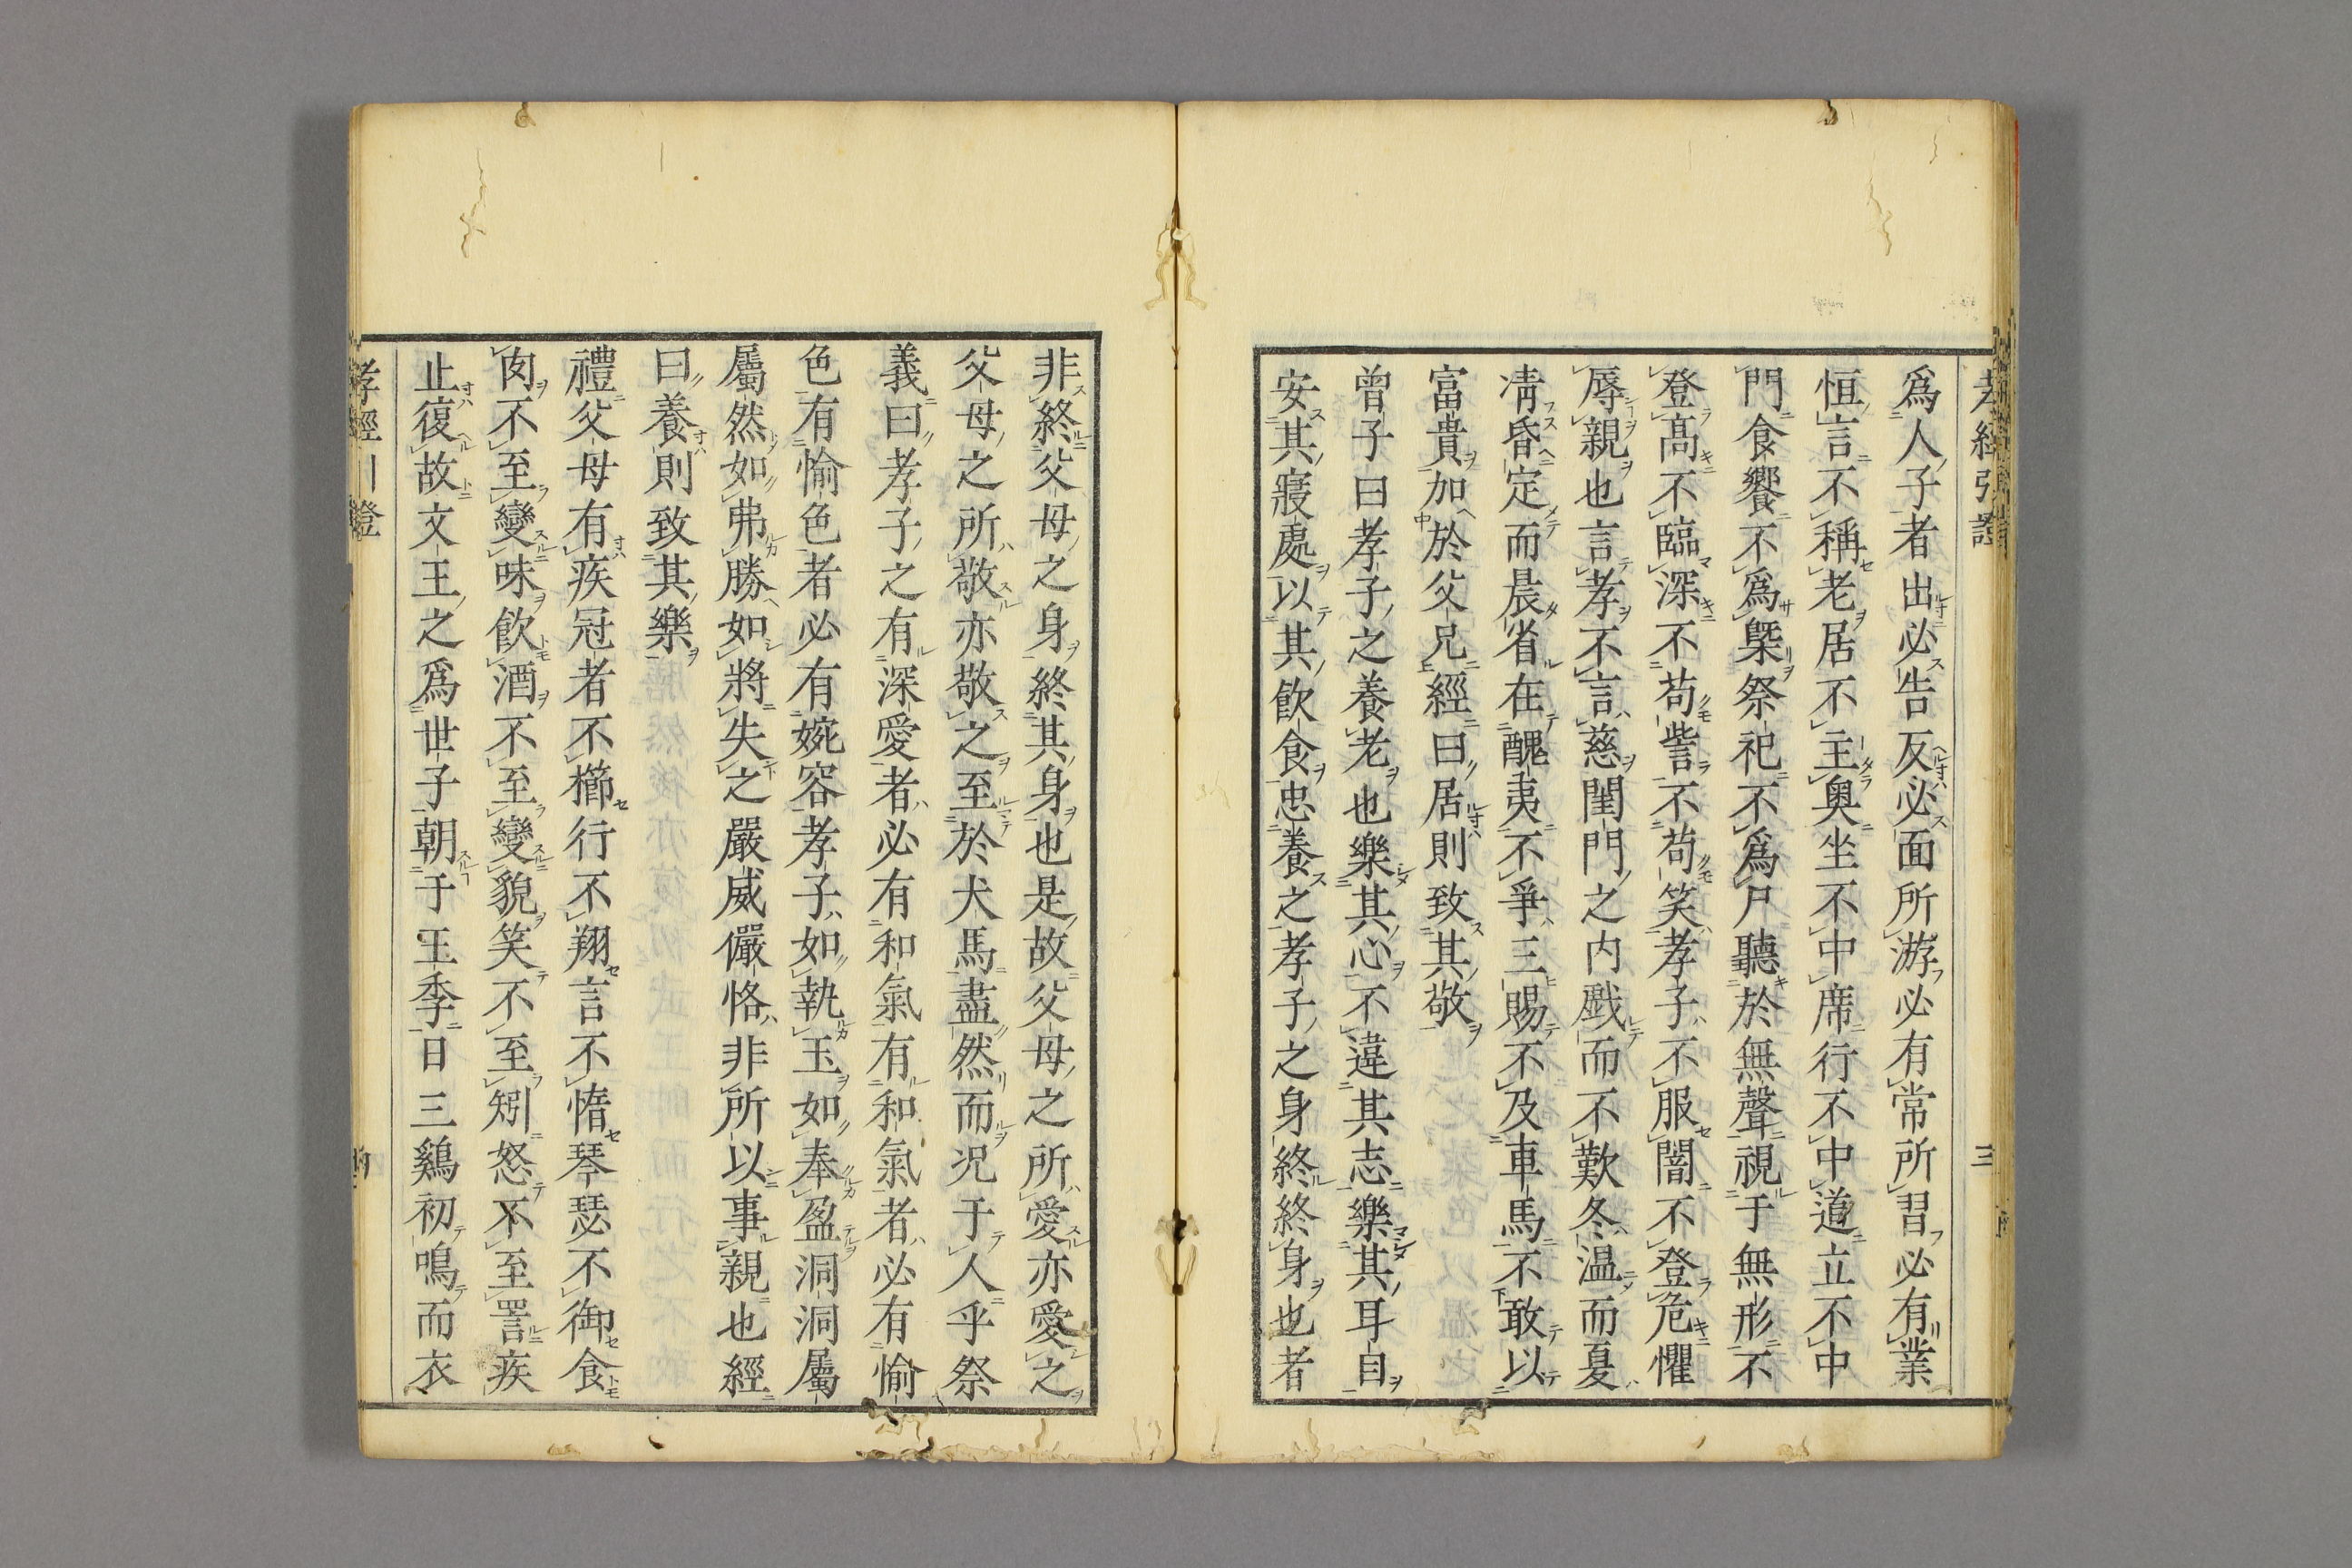 爲人子者出必告反必面所游必有常所習必有業
恒言不稱老居不主奧坐不中席行不中道立不中
門食饗不爲槩祭祀不爲尸聽於無聲視于無形不
登髙不臨深不苟訾不苟笑孝子不服闇不登危懼
辱親也言孝不言慈閨門之内戲而不歎冬温而夏
凊昏定而晨省在醜夷不爭三賜不及車馬不敢以
富貴加於父兄經曰居則致其敬
曽子曰孝子之養老也樂其心不違其志樂其耳目
安其寢處以其飲食忠養之孝子之身終終身也者
非終父母之身終其身也是故父母之所愛亦愛之
父母之所敬亦敬之至於犬馬盡然而況于人乎祭
義曰孝子之有深愛者必有和氣有和氣者必有愉
色有愉色者必有婉容孝子如執玉如奉盈洞洞屬
屬然如弗勝如將失之嚴威儼恪非所以事親也經
曰養則致其樂
禮父母有疾冠者不櫛行不翔言不惰琴瑟不御食
肉不至變味飲酒不至變貌笑不至矧怒不至詈疾
止復故文王之爲世子朝于王季日三鷄初鳴而衣
孝經引證